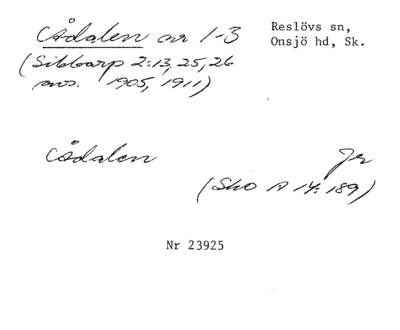 Ådalen nr 1-3
Reslövs sn,
Onsjö hd, Sk.
(Sibbarp 2:13, 25, 26
avs. 1905, 1911)
Ådalen Jr
(Sko A 14:189)
Nr 23925